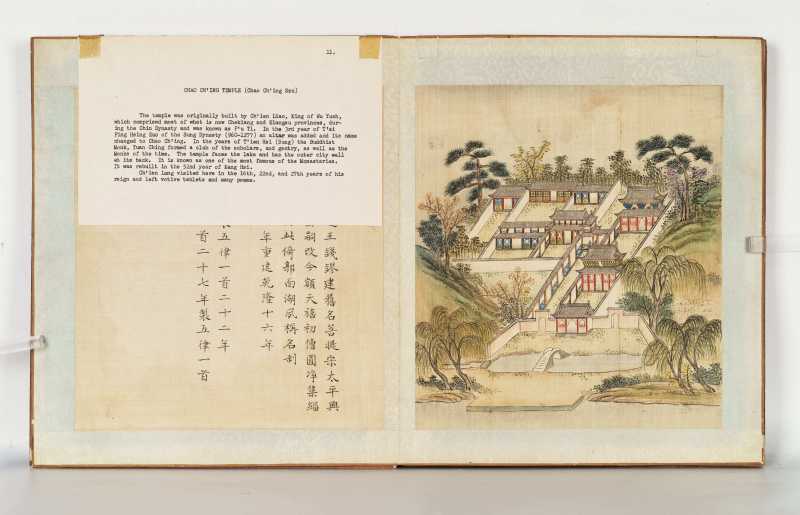 11.
CHAO CH'ING TEMPLE (Chao Ch'ing Szu)
The temple was originally built by Ch'ien Liao, King of Wu Yueh,
which comprised most of what is now Chekiang and Kiangsu provinces, dur-
ing the Chin Dynasty and was known as P'u Ti. In the 3rd year of T'ai
Ping Hsing Kuo of the Sung Dynasty (960-1277) an altar was added and its name
changed to Chao Ch'ing. In the years of T'ien Hsi (Sung) the Buddhist
Monk, Yuan Ching formed a club of the scholars, and gentry, as well as the
Monks of the time. The temple faces the lake and has the outer city wall
at its back. It is known as one of the most famous of the Monasteries.
It was rebuilt in the 52nd year of Kang Hsi.
Ch'ien Lung visited here in the 16th, 22nd, and 27th years of his
reign and left votive tablets and many poems.
王錢鏐建舊名菩提宗太平興
改今額天禧初僧圓淨集緇
此倚郭面湖夙稱名刹
年重建乾隆十六年
五律一首二十二年
首二十七年製五律一首